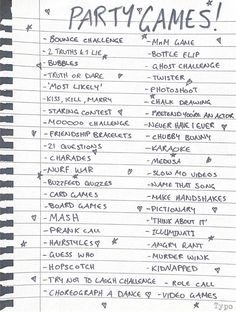 PARTY GAMES!
- BOUNCE CHALLENGE
- 2 TRUTHS & 1 LIE
- BUBBLES
- TRUTH OR DARE
- 'MOST LIKELY'
- KISS, KILL, MARRY
- STARING CONTEST
- MOOOOO CHALLENGE
- FRIENDSHIP BRACELETS
- 21 QUESTIONS
- CHARADES
- NURF WAR
- BUZZFEED QUIZZES
- CARD GAMES
- BOARD GAMES
- MASH
- PRANK CALL
- HAIRSTYLES
- GUESS WHO
- HOPSCOTCH
- TRY NOT TO LAUGH CHALLENGE
- CHOREOGRAPH A DANCE
- MnM GAME
- BOTTLE FLIP
- GHOST CHALLENGE
- TWISTER
- PHOTOSHOOT
- CHALK DRAWING
- PRETEND YOU'R AN ACTOR
- NEVER HAVE I EVER
- CHUBBY BUNNY
- KARAOKE
- MEDUSA
- SLOW MO VIDEOS
- NAME THAT SONG
- MAKE HANDSHAKES
- PICTIONARY
- 'THINK ABOUT IT'
- ILLUMINATI
- ANGRY RANT
- MURDER WINK
- KIDNAPPED
- ROLE CALL
- VIDEO GAMES
Typo